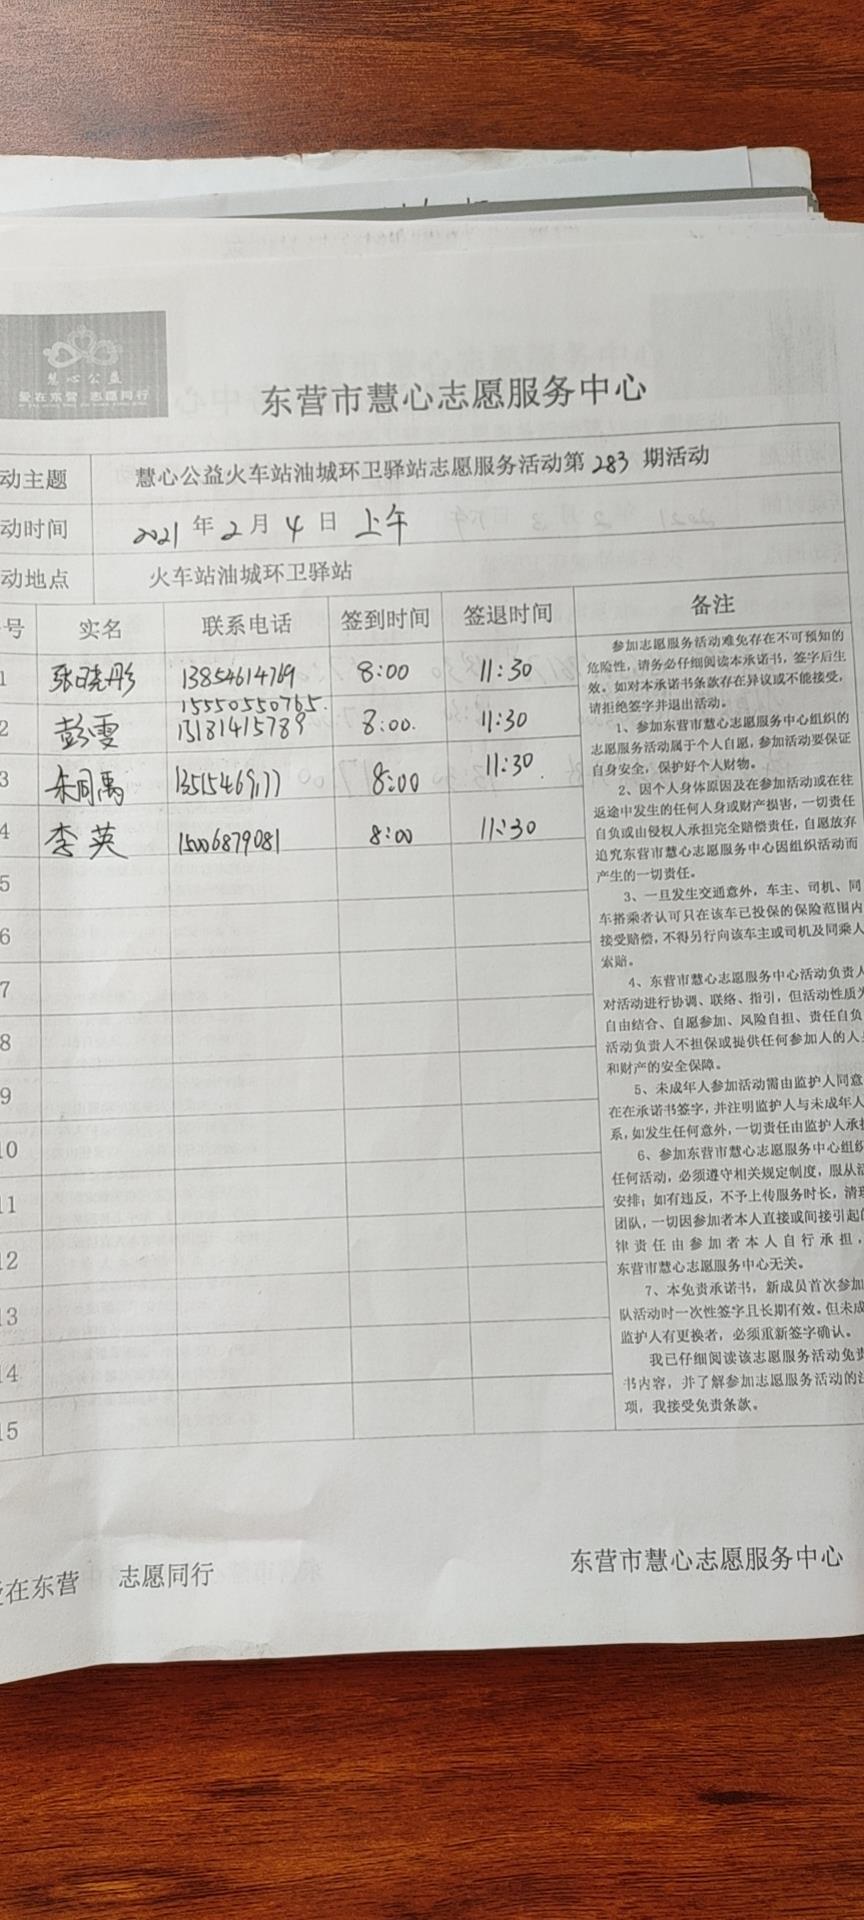 慧心公益
爱在东营 志愿同行
东营市慧心志愿服务中心
动主题 慧心公益火车站油城环卫驿站志愿服务活动第283期活动
动时间 2021年2月4日 上午
动地点 火车站油城环卫驿站
号 实名 联系电话 签到时间 签退时间 备注
1 张晓彤 13854614769 8:00 11:30
15550550765.
2 彭雯 13181415789 8:00. 11:30
3 8:00 11:30
4 李英 15006879081 8:00 11:30
5
6
7
8
9
10
11
12
13
14
15
参加志愿服务活动难免存在不可预知的
危险性,请务必仔细阅读本承诺书,签字后生
效。如对本承诺书条款存在异议或不能接受,
请拒绝签字并退出活动。
1、参加东营市慧心志愿服务中心组织的
志愿服务活动属于个人自愿,参加活动要保证
自身安全,保护好个人财物。
2、因个人身体原因及在参加活动或在往
返途中发生的任何人身或财产损害,一切责任
自负或由侵权人承担完全赔偿责任,自愿放弃
追究东营市慧心志愿服务中心因组织活动而
产生的一切责任。
3、一旦发生交通意外,车主、司机、同
车搭乘者认可只在该车已投保的保险范围内
接受赔偿,不得另行向该车主或司机及同乘人
索赔。
4、东营市慧心志愿服务中心活动负责人
对活动进行协调、联络、指引,但活动性质为
自由结合、自愿参加、风险自担、责任自负
活动负责人不担保或提供任何参加人的人身
和财产的安全保障。
5、未成年人参加活动需由监护人同意
在在承诺书签字,并注明监护人与未成年人
系,如发生任何意外,一切责任由监护人承担
6、参加东营市慧心志愿服务中心组织
任何活动,必须遵守相关规定制度,服从活
安排;如有违反,不予上传服务时长,清理
团队,一切因参加者本人直接或间接引起的
律责任由参加者本人自行承担,
东营市慧心志愿服务中心无关。
7、本免责承诺书,新成员首次参加
队活动时一次性签字且长期有效。但未成
监护人有更换者,必须重新签字确认。
我已仔细阅读该志愿服务活动免责
书内容,并了解参加志愿服务活动的注
项,我接受免责条款。
爱在东营 志愿同行
东营市慧心志愿服务中心